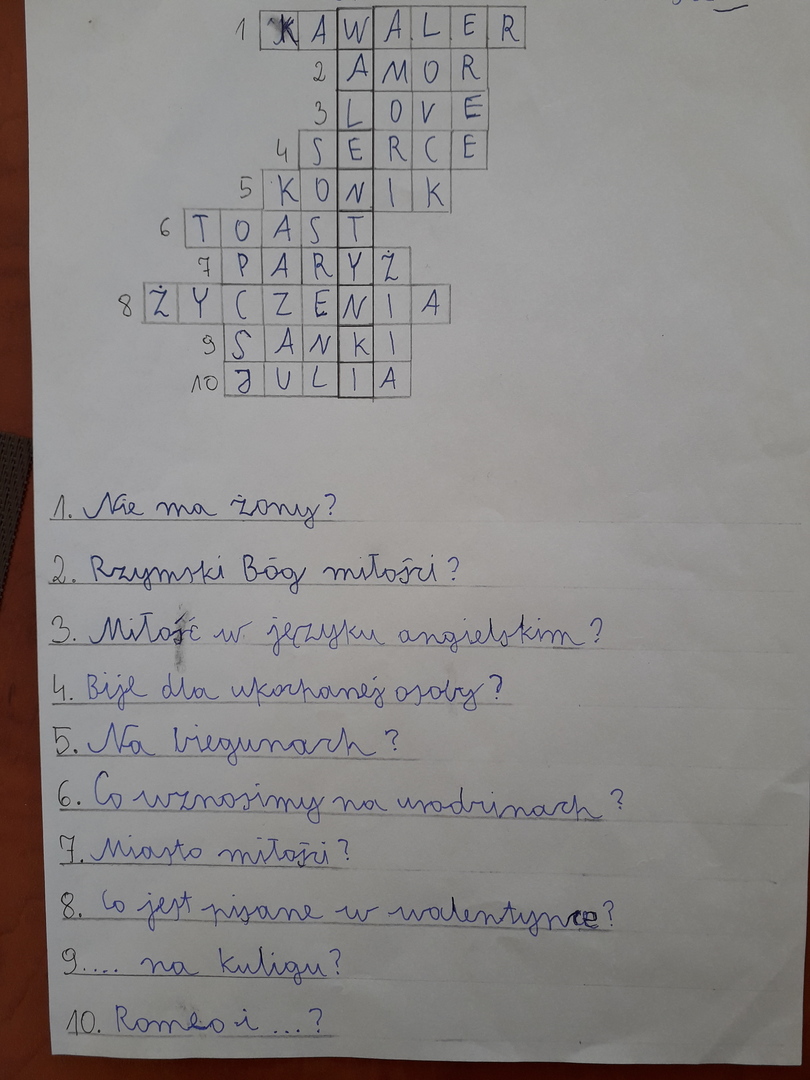 1 KAWALER
2 AMOR
3 LOVE
4 SERCE
5 KONIK
6 TOAST
7 PARYŻ
8 ŻYCZENIA
9 SANKI
10 JULIA
1. Nie ma żony?
2. Rzymski Bóg miłości?
3. Miłość w języku angielskim?
4. Bije dla ukochanej osoby?
5. Na biegunach?
6. Co wznosimy na urodzinach?
7. Miasto miłości?
8. Co jest pisane w walentynce?
9.... na kuligu?
10. Romeo i ...?